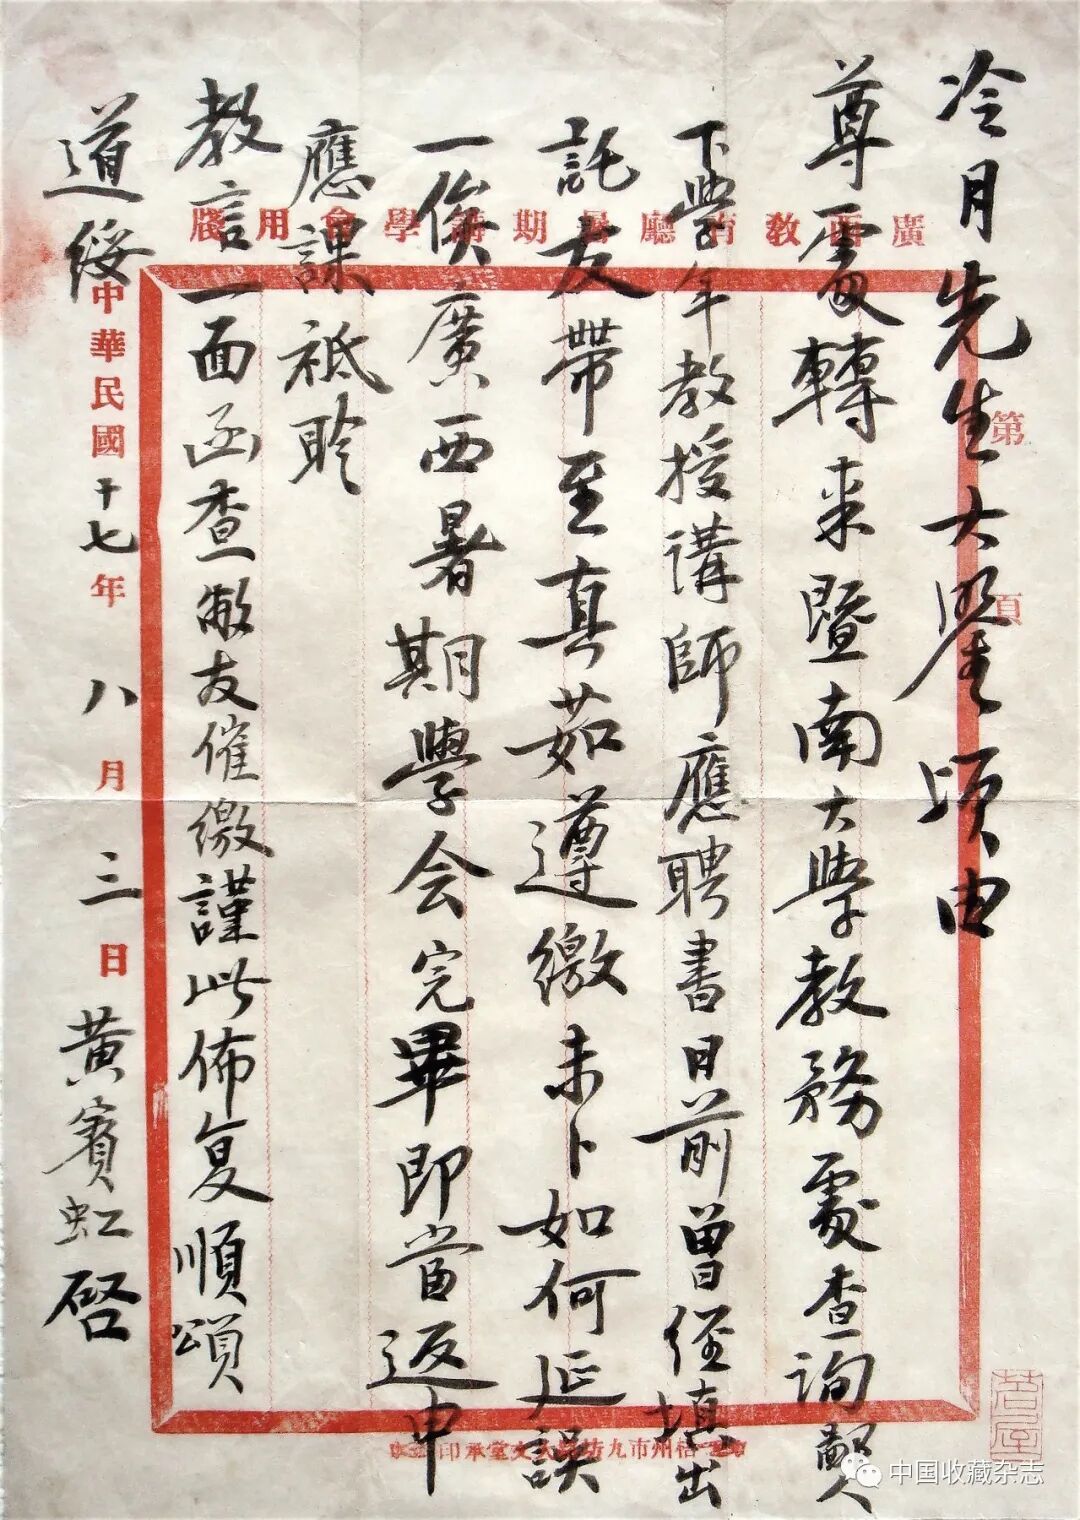 廣西教育廳暑期講學會用牋
第 頁
冷月先生大鑒頃由
尊處轉來暨南大學教務處查詢賢
下學年教授講師應聘書日前曾经填出
託友帶至真茹遵繳未卜如何延誤
一俟廣西暑期學会完畢即當返申
應課祇聆
教言一面函查敝友催繳謹此佈复順頌
道綏
中華民國十七年八月三日黄賓虹啓
中国收藏杂志